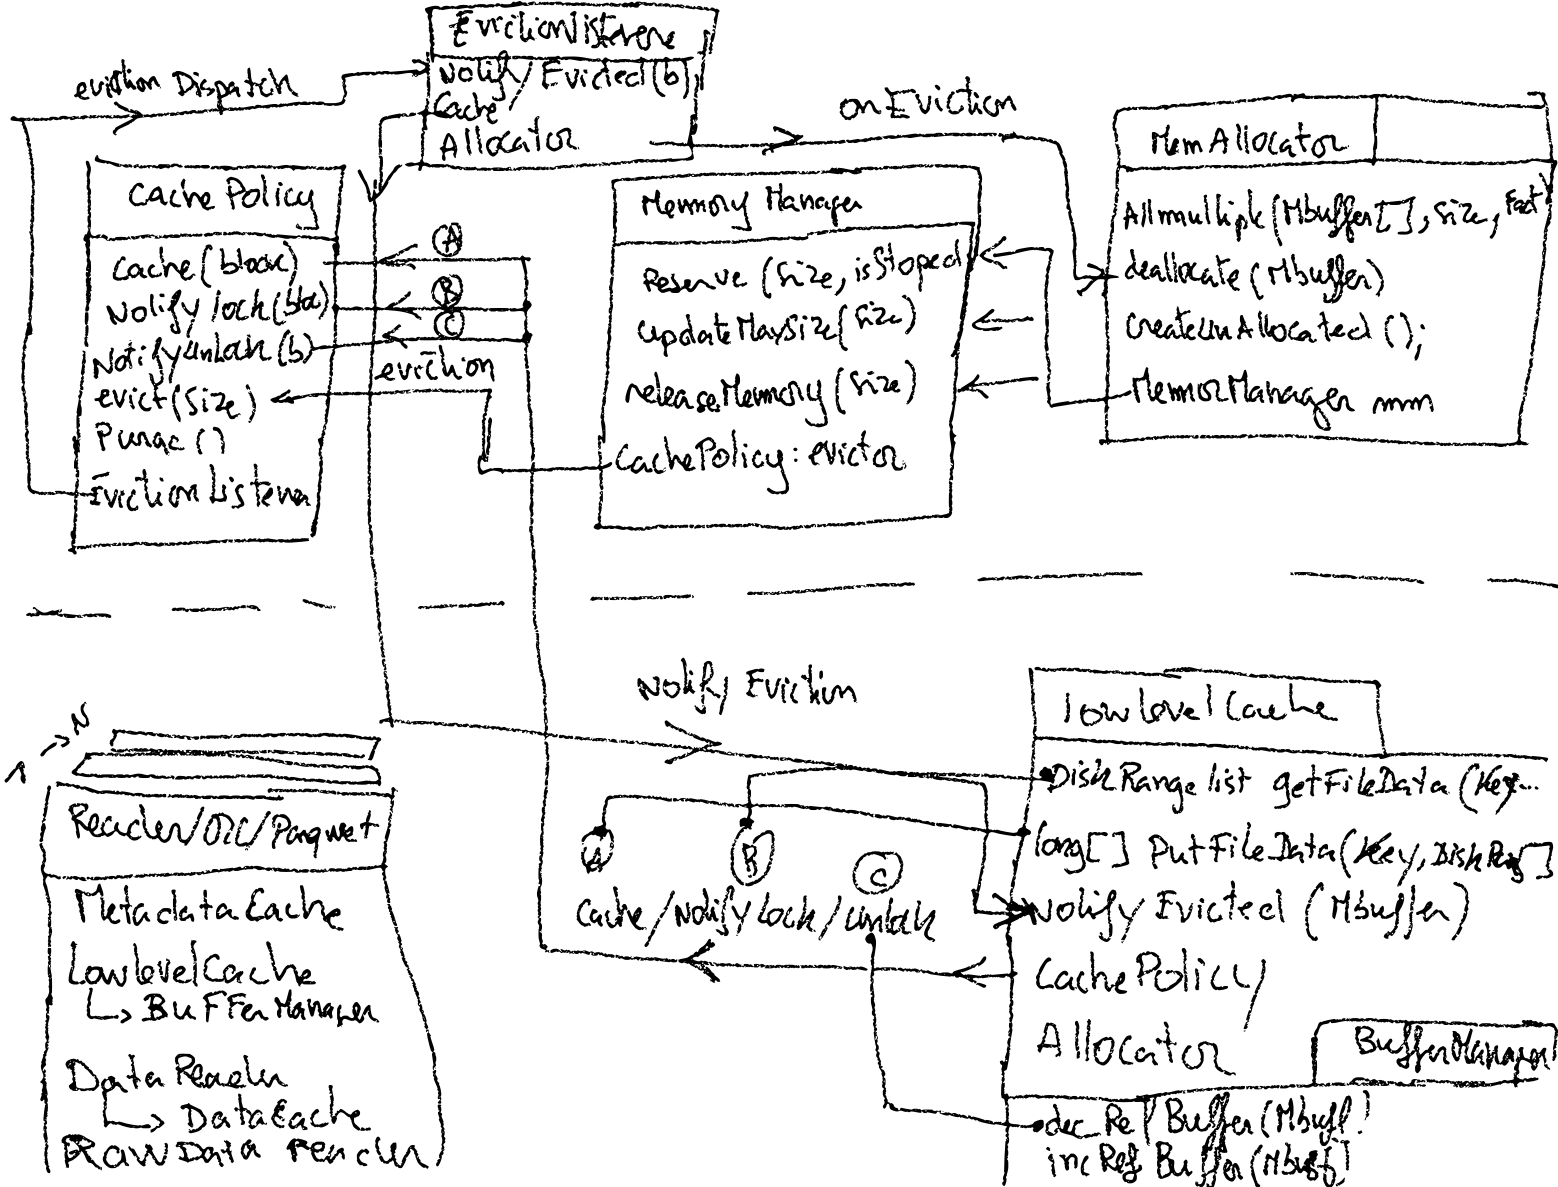 EvictionListener
Notify/Evicted(b)
Cache
Allocator
eviction Dispatch
onEviction
Cache Policy
Cache(block)
Notify lock(bloc)
NotifyUnLock(b)
evict(Size)
EvictionListener
A
B
C
eviction
Memory Manager
Reserve (Size, isStoped
updateMaxSize(Size)
releaseMemory(Size)
CachePolicy: evictor
MemAllocator
Allmultiple(Mbuffer[], Size, Fact
deallocate(Mbuffer)
CreateUnAllocated();
MemorManager mm
Notify Eviction
1 → N
Reader/ORC/Parquet
MetadataCache
LowlevelCache
↳ BuFFerManager
DataReader
↳ DataCache
RawData reader
A
B
C
Cache/Notify Lock/Unlock
lowlevelCache
DiskRangelist getFileData(Key...
long[] PutFileData(Key, DiskRang[]
Notify Evicted (Mbuffer)
CachePolicy
Allocator
BufferManager
dec_Ref Buffer(Mbuff)
incRef Buffer(Mbuff)